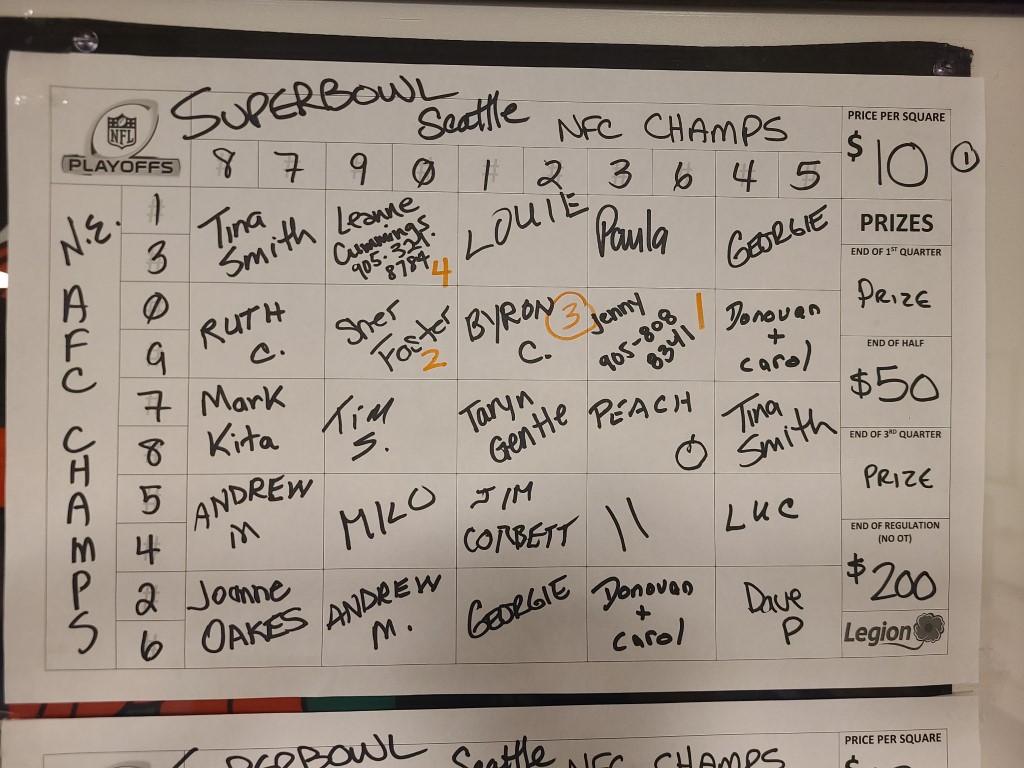 SUPERBOWL
Seattle NFC CHAMPS
NFL
PLAYOFFS
8 7 9 0 1 2 3 6 4 5
N.E. AFC CHAMPS
1
3
Tina Smith
Leanne Cummings 905.321.8784 4
LOUIE
Paula
GEORGIE
0
9
RUTH C.
Sher Foster 2
BYRON C. 3
Jenny 905-808 8341 1
Donovan + Carol
7
8
Mark Kita
Tim S.
Taryn Gentle
PEACH
Tina Smith
5
4
ANDREW M
MILO
JIM CORBETT
11
LUC
2
6
Joanne OAKES
ANDREW M.
GEORGIE
Donovan + Carol
Dave P
PRICE PER SQUARE
$10
1
PRIZES
END OF 1ST QUARTER
PRIZE
END OF HALF
$50
END OF 3RD QUARTER
PRIZE
END OF REGULATION
(NO OT)
$200
Legion
SUPERBOWL Seattle NFC CHAMPS
PRICE PER SQUARE